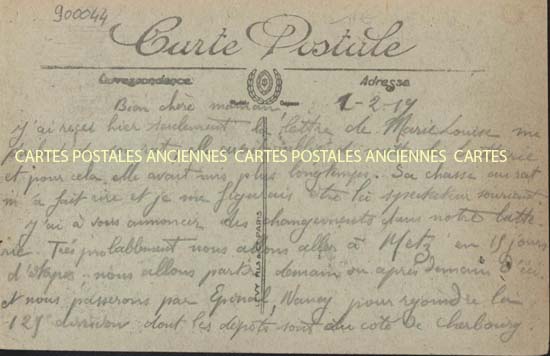 900044
Carte Postale
Correspondance
Adresse
Bien chère maman 1-2-19
j'ai reçu hier seulement la lettre de Marie Louise me
CARTES POSTALES ANCIENNES CARTES POSTALES ANCIENNES CARTES
et pour cela elle avait mis plus longtemps. Sa chasse au rat
m'a fait rire et je me figurais être là spectateur souriant
j'ai à vous annoncer des changements dans notre batte
rie. Très probablement nous allons aller à Metz en 15 jours
d'étapes. nous allons partir demain ou après demain d'ici
et nous passerons par Epinal, Nancy pour rejoindre la
125 division dont les dépôts sont du côté de Cherbourg.
PARIS